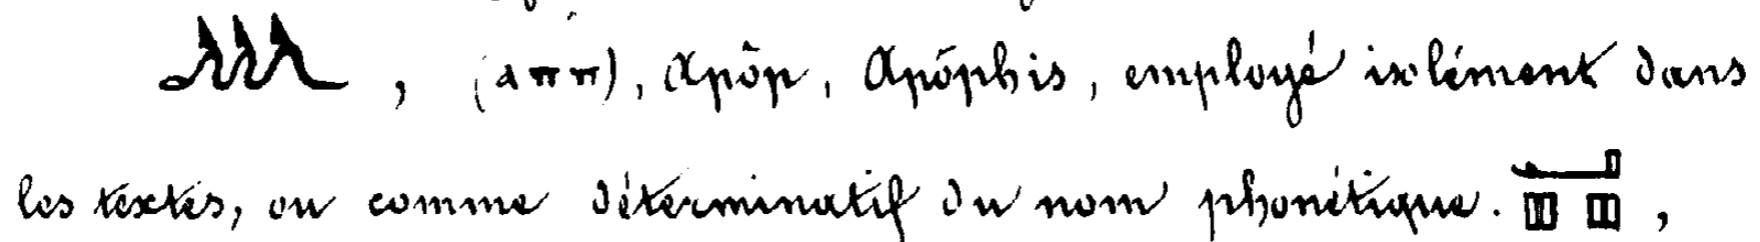 𓆓, (aππ), Apôp, Apôphis, employé isolément dans
les textes, ou comme déterminatif du nom phonétique. 𓂝𓊪𓊪,